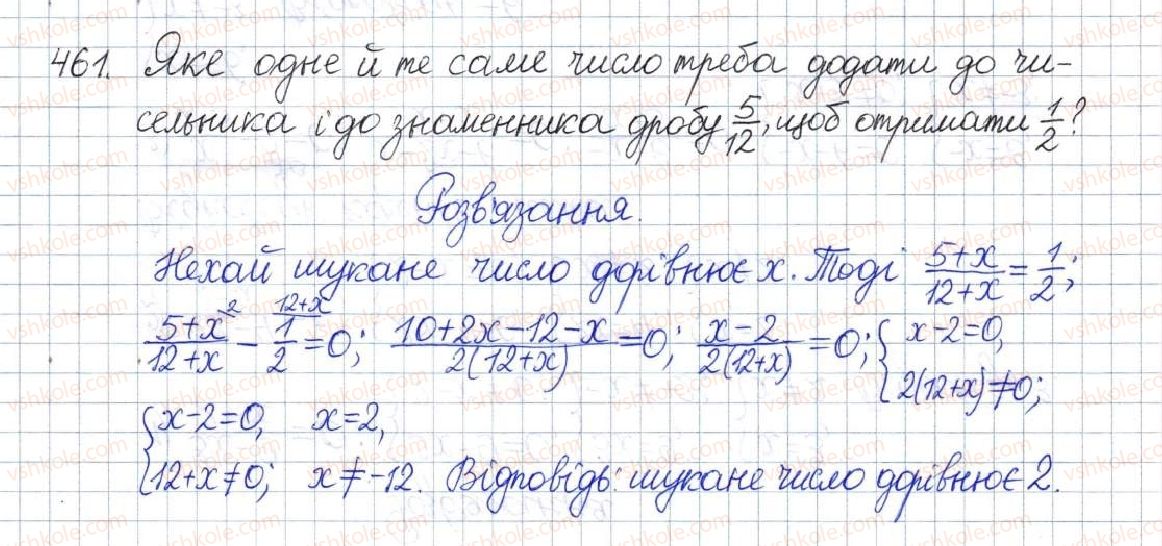 461. Яке одне й те саме число треба додати до чи-
сельника і до знаменника дробу 5/12, щоб отримати 1/2?
Розв'язання.
Нехай шукане число дорівнює x. Тоді (5+x)/(12+x) = 1/2;
(5+x)/(12+x) ^2 - 1/2 ^(12+x) = 0; (10+2x-12-x)/(2(12+x)) = 0; (x-2)/(2(12+x)) = 0; { x-2=0, 2(12+x)≠0;
{ x-2=0, x=2,
12+x≠0; x≠-12. Відповідь: шукане число дорівнює 2.